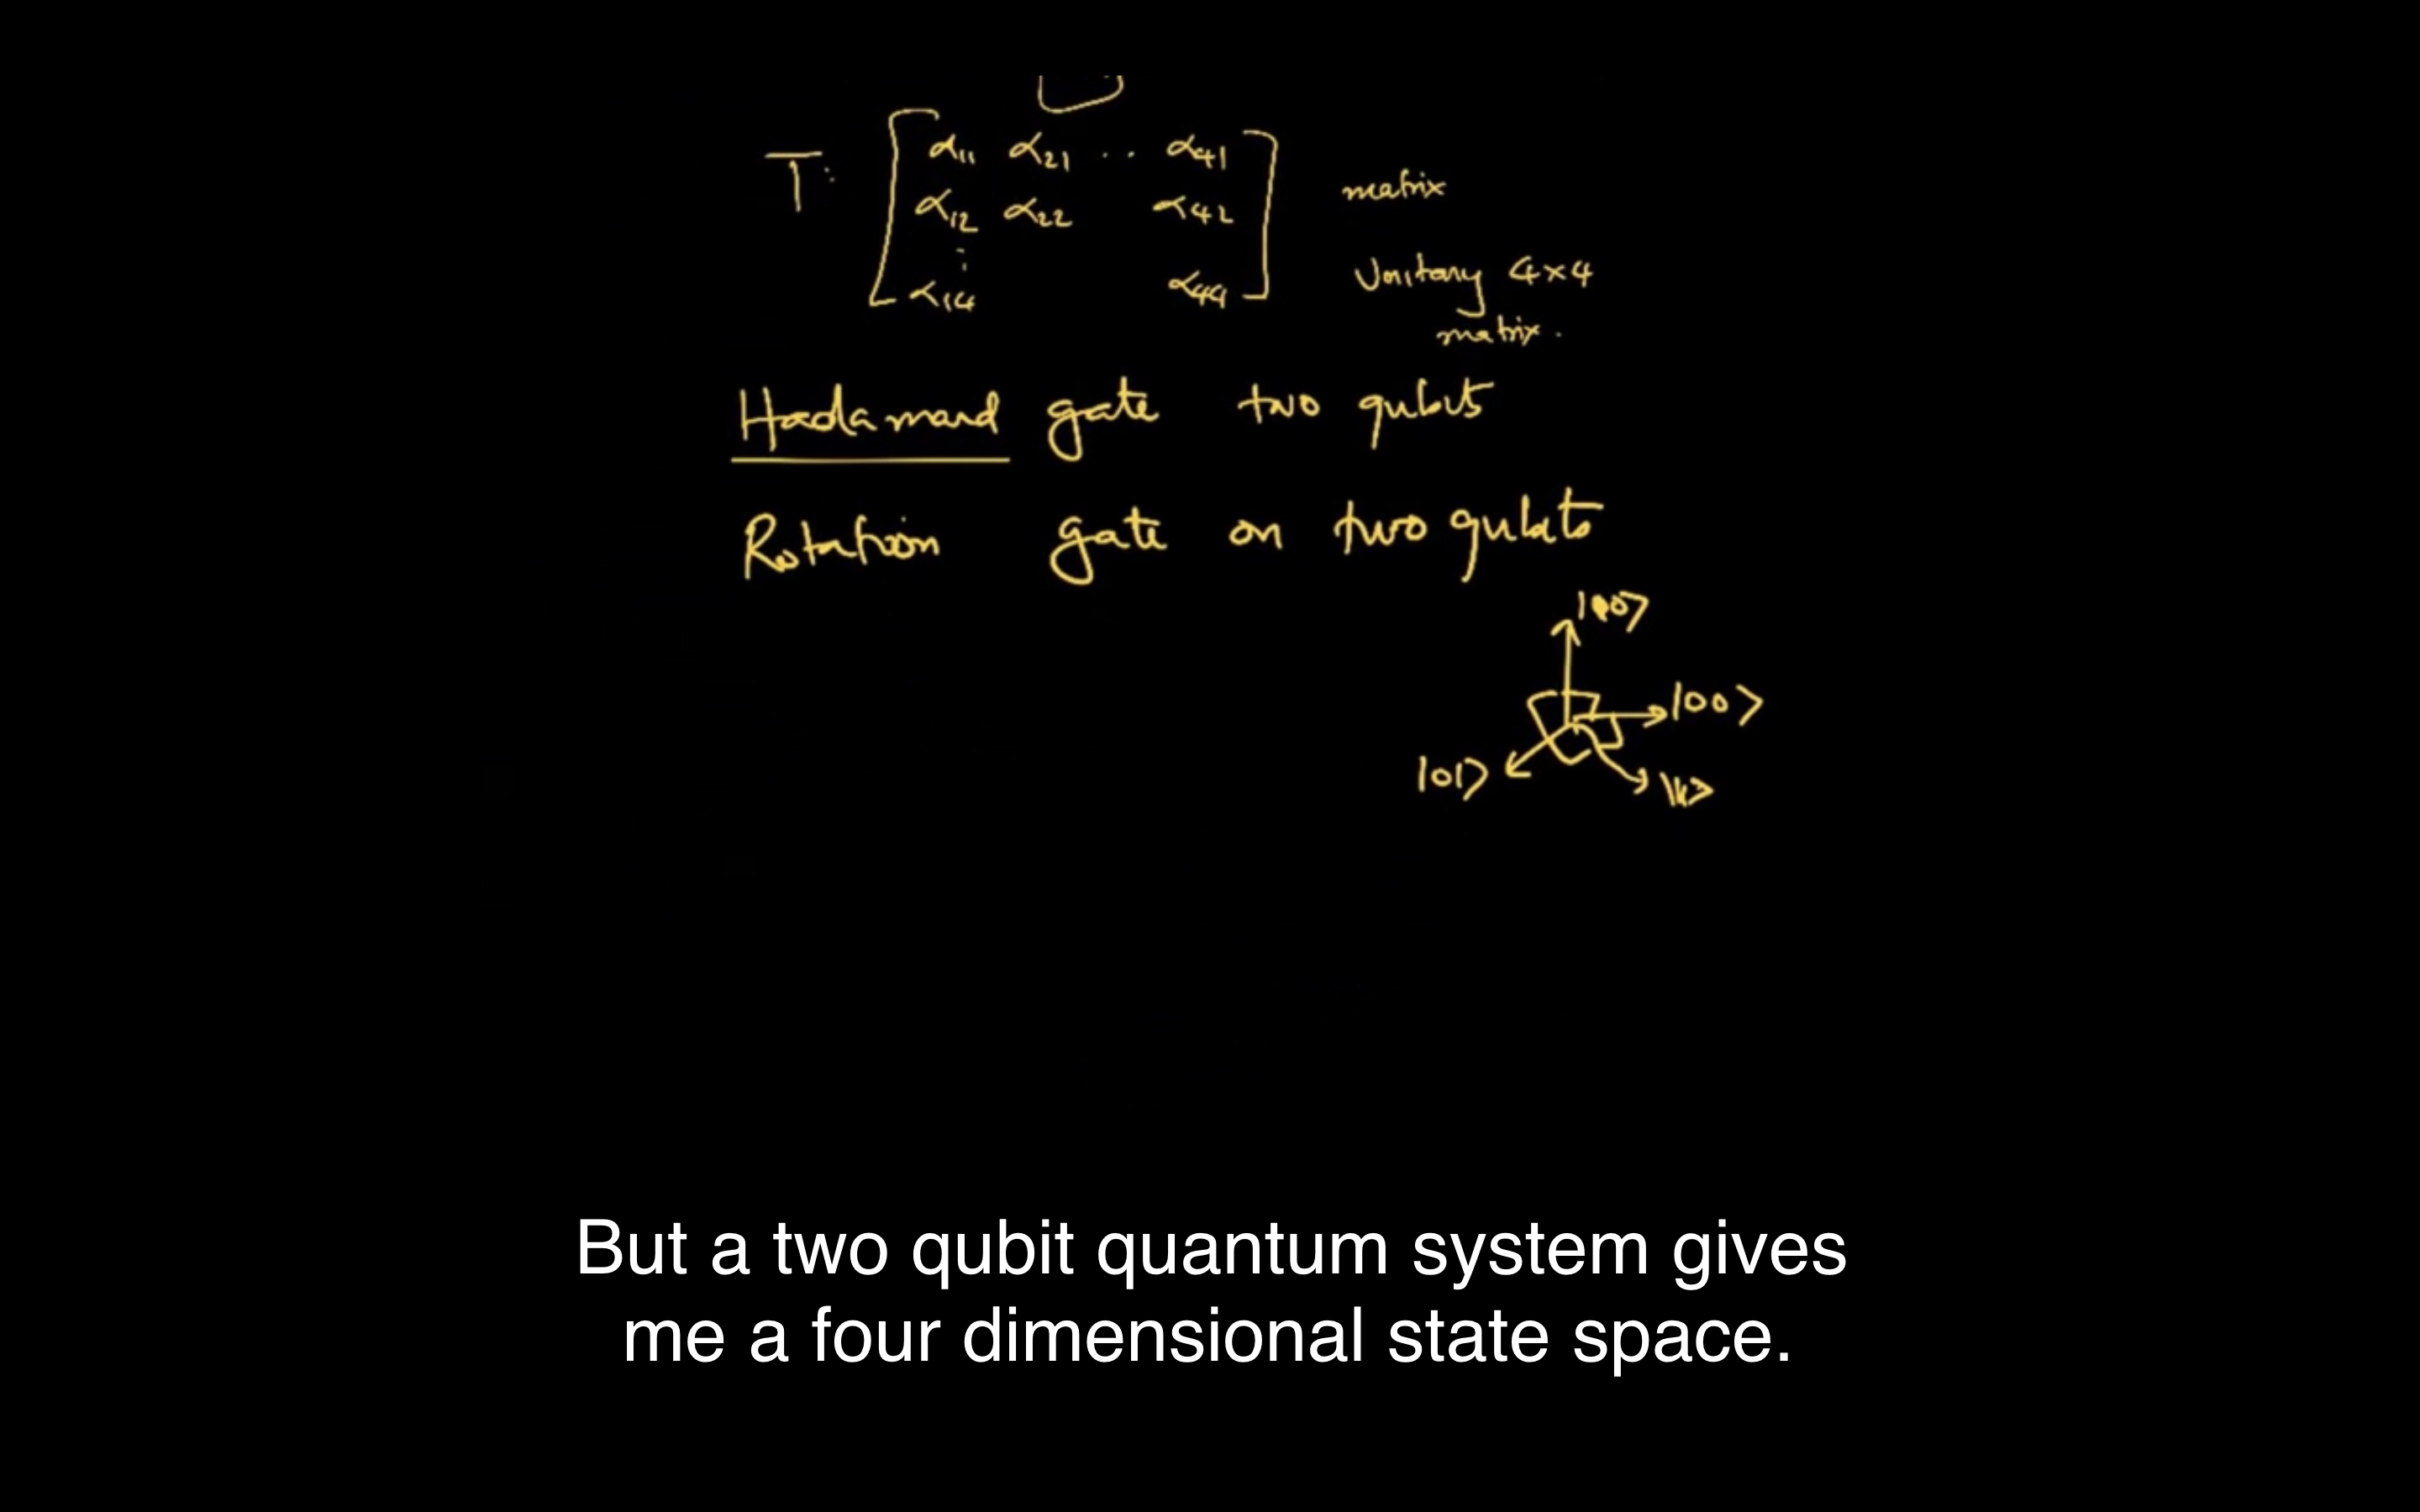 T: [ α11 α21 .. α41 ] matrix
α12 α22 α42
Unitary 4x4
⋮
α14 α44
matrix.
Hadamard gate two qubits
Rotation gate on two qubits
|00>
|01>
But a two qubit quantum system gives
me a four dimensional state space.